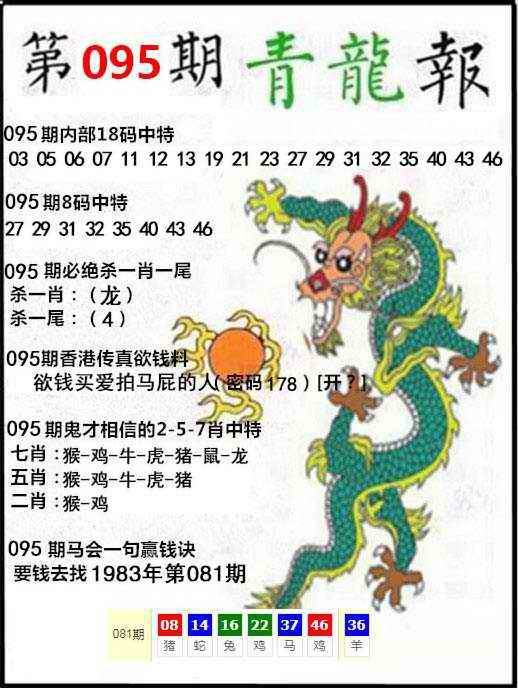 第095期 青龍報
095期内部18码中特
03 05 06 07 11 12 13 19 21 23 27 29 31 32 35 40 43 46
095期8码中特
27 29 31 32 35 40 43 46
095 期必绝杀一肖一尾
杀一肖：（龙）
杀一尾：（4）
095期香港传真欲钱料
欲钱买爱拍马屁的人(密码178)[开?]
095期鬼才相信的2-5-7肖中特
七肖:猴-鸡-牛-虎-猪-鼠-龙
五肖:猴-鸡-牛-虎-猪
二肖:猴-鸡
095期马会一句赢钱诀
要钱去找1983年第081期
081期 08 14 16 22 37 46 36
猪 蛇 兔 鸡 马 鸡 羊